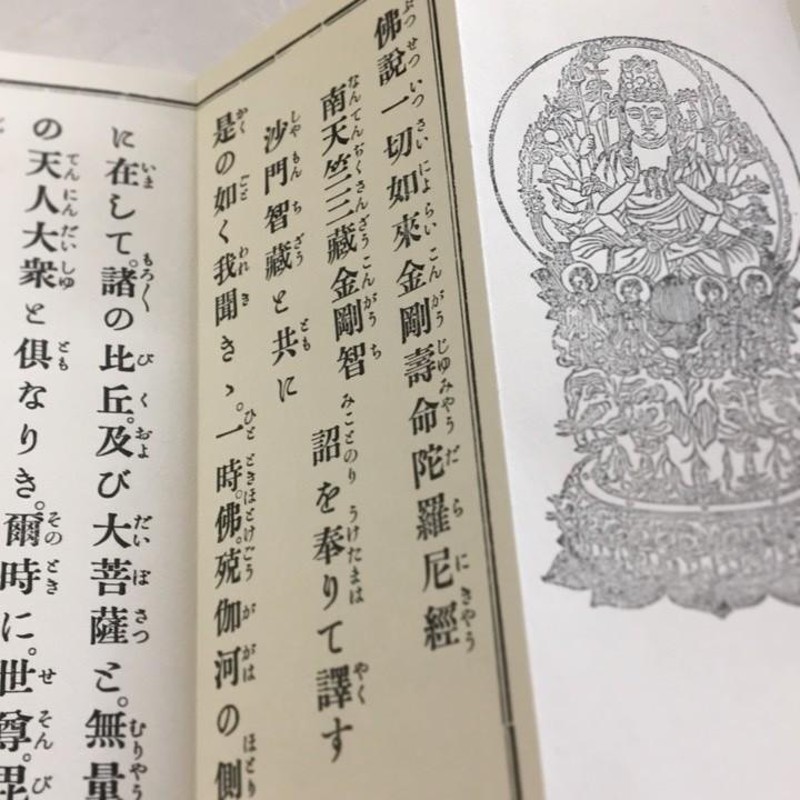 佛說一切如來金剛壽命陀羅尼經
南天竺三藏金剛智
沙門智藏と共に 詔を奉りて譯す
是の如く我聞きゝ。一時。佛。殑伽河の側
に在して。諸の比丘。及び大菩薩と。無量
の天人大衆と倶なりき。爾時に。世尊。毘